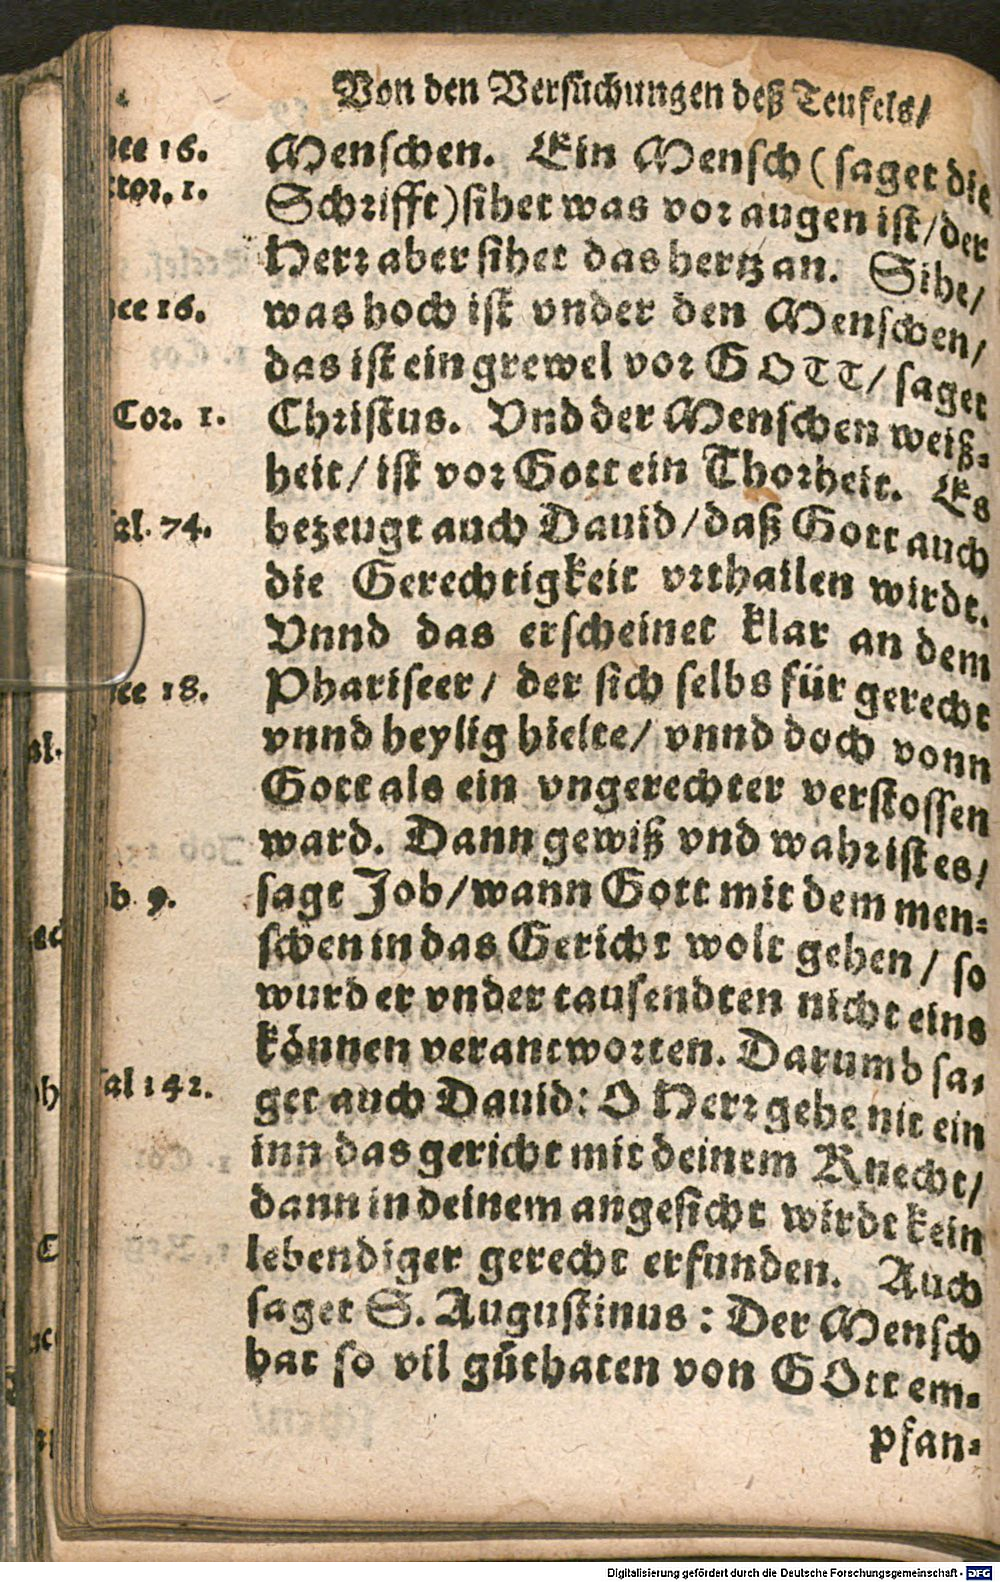 Von den Versuchungen deß Teufels/
Menschen. Ein Mensch (saget die
Schrifft) sihet was vor augen ist/ der
Herr aber sihet das hertz an. Sihe/
was hoch ist vnder den Menschen/
das ist ein grewel vor GOTT/ saget
Christus. Vnd der Menschen weiß-
heit/ ist vor Gott ein Thorheit. Es
bezeugt auch Dauid/ daß Gott auch
die Gerechtigkeit vrthailen wirdt.
Vnnd das erscheinet klar an dem
Phariseer/ der sich selbs für gerecht
vnnd heylig hielte/ vnnd doch vonn
Gott als ein vngerechter verstossen
ward. Dann gewiß vnd wahr ist es/
sagt Job/ wann Gott mit dem men-
schen in das Gericht wolt gehen/ so
wurd er vnder tausendten nicht eins
können verantworten. Darumb sa-
get auch Dauid: O Herr gehe nit ein
inn das gericht mit deinem Knecht/
dann in deinem angesicht wirdt kein
lebendiger gerecht erfunden. Auch
saget S. Augustinus: Der Mensch
hat so vil gůthaten von GOtt em-
pfan-
16.
1.
16.
Cor. 1.
74.
18.
9.
142.
Digitalisierung gefördert durch die Deutsche Forschungsgemeinschaft - DFG